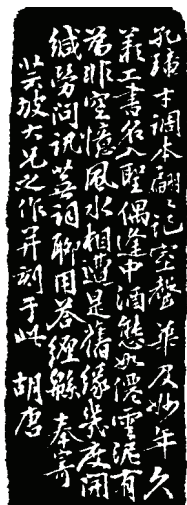 孔璋才調本翩〻記室聲華及妙年久
羨工書名入聖偶逢中酒態如僊雲泥有
為非空憶風水相遭是舊緣幾度開
緘勞問訊蕪詞聊用答纏綿 奉寄
芸坡大兄之作并刻于此 胡唐